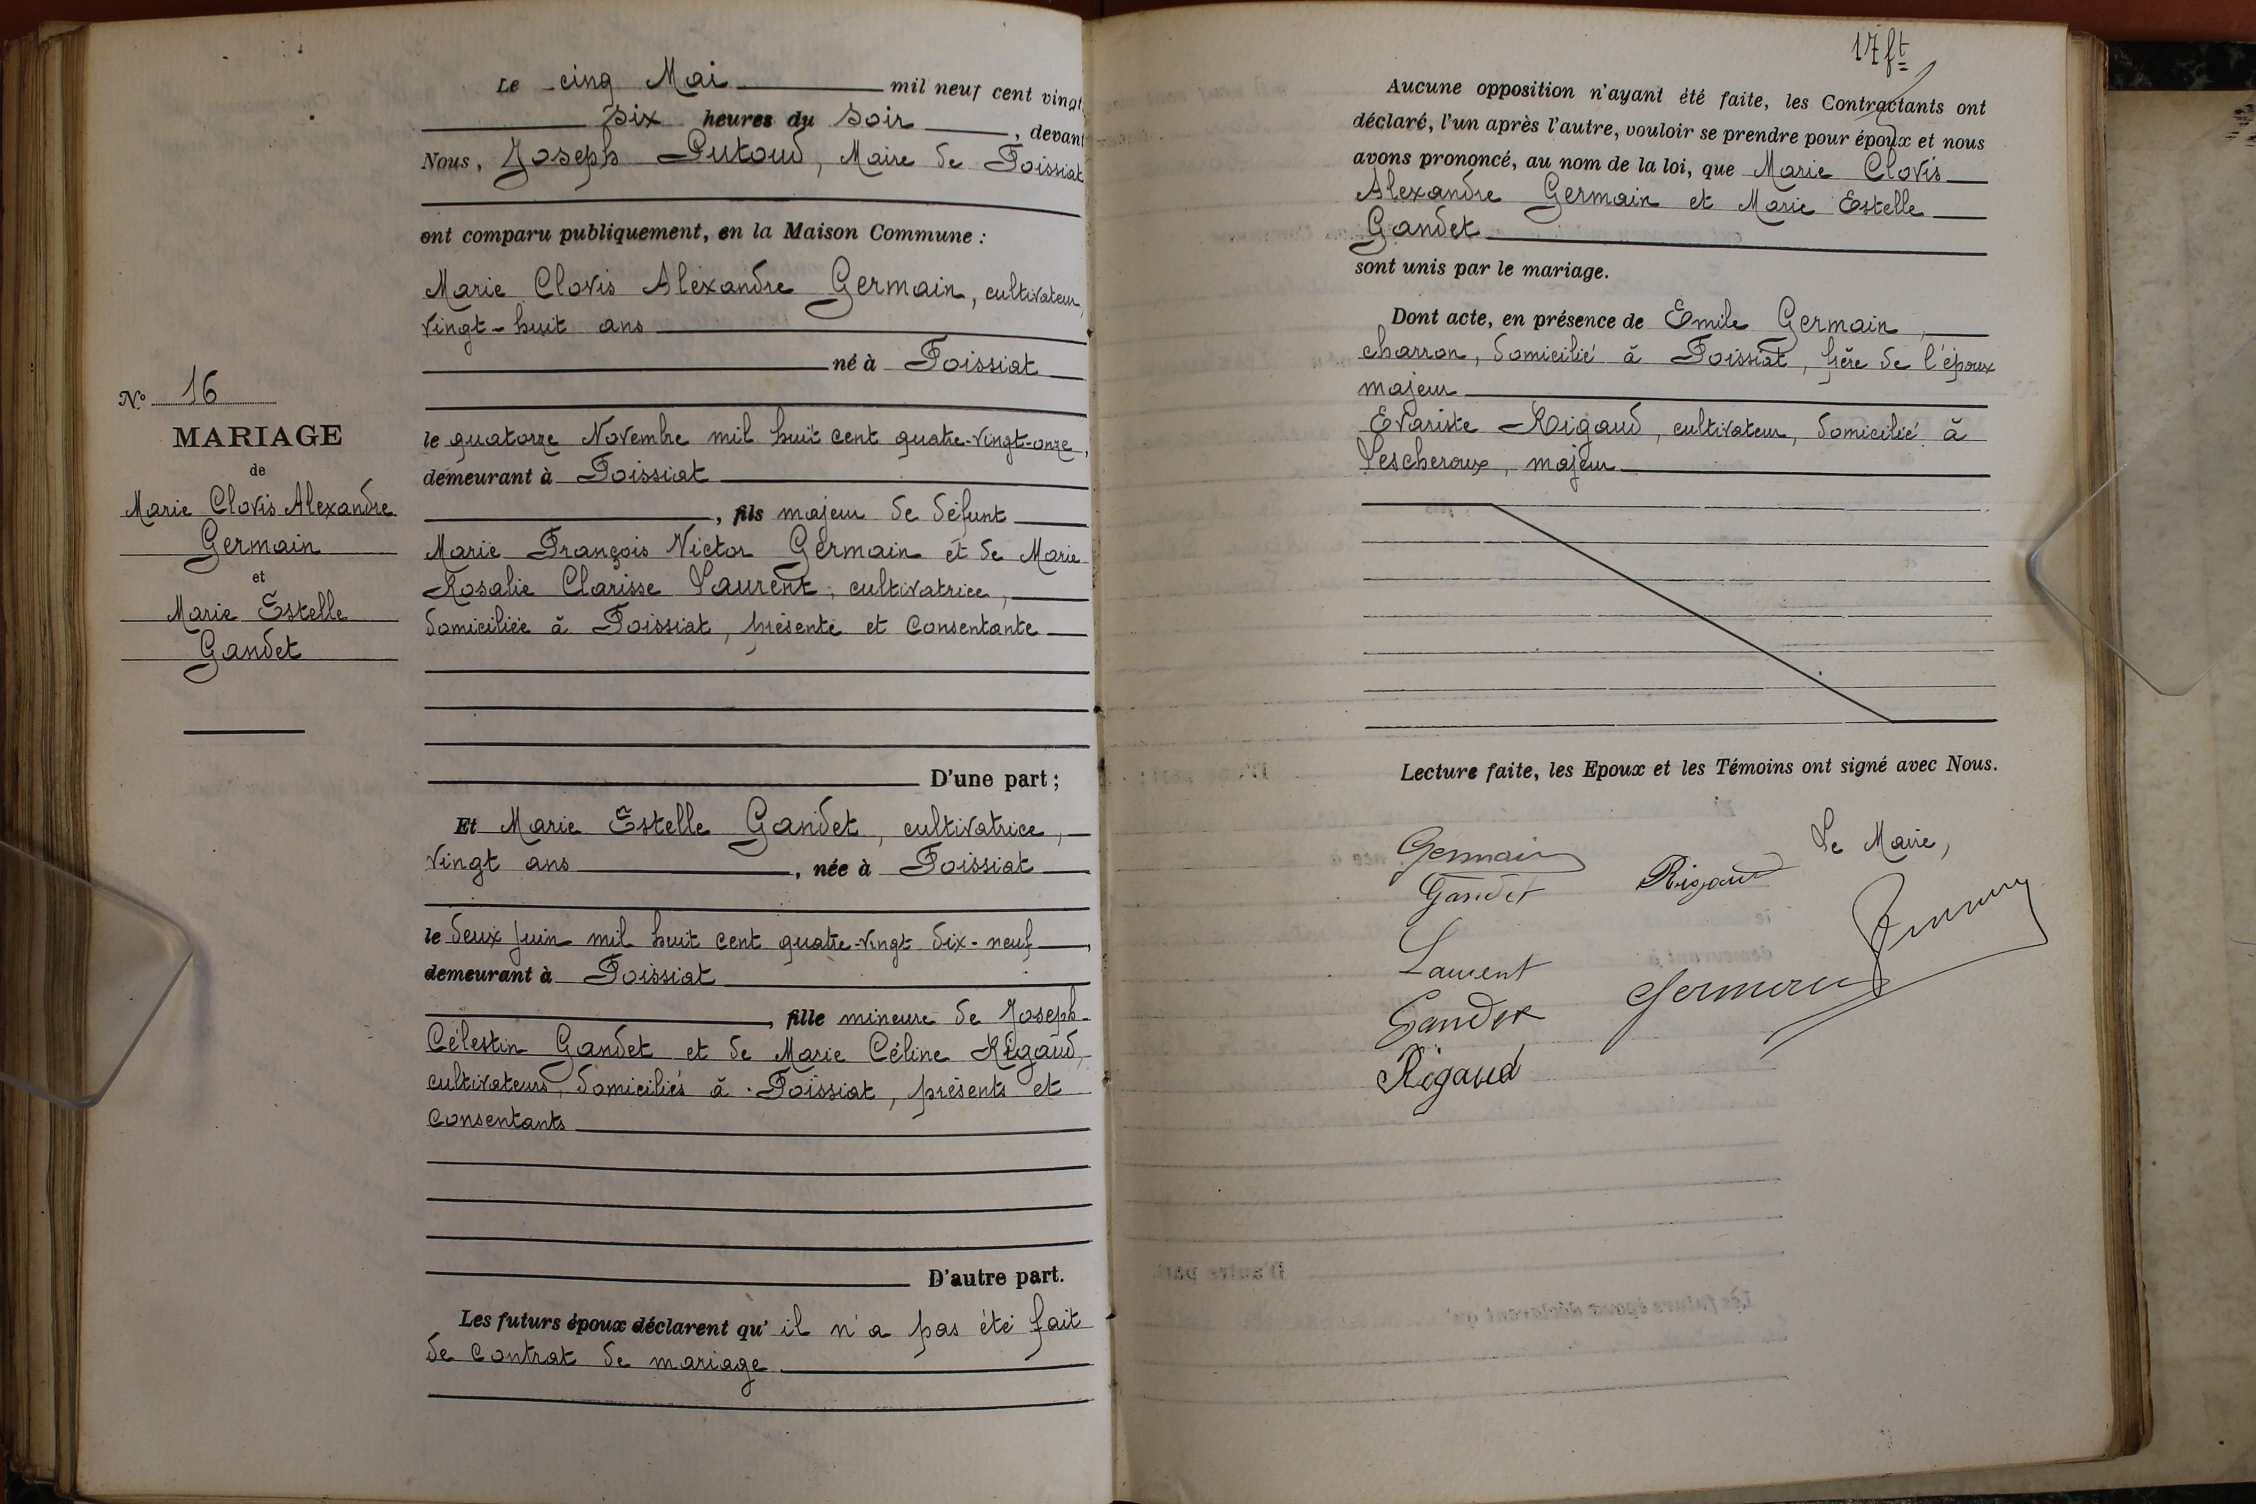 Le cinq Mai mil neuf cent vingt
six heures du soir, devant
Nous, Joseph Putoud, Maire de Foissiat
ont comparu publiquement, en la Maison Commune :
Marie Clovis Alexandre Germain, cultivateur,
vingt-huit ans
né à Foissiat
le quatorze Novembre mil huit cent quatre-vingt-onze,
demeurant à Foissiat
, fils majeur de défunt
Marie François Victor Germain et de Marie
Rosalie Clarisse Laurent, cultivatrice,
domiciliée à Foissiat, présente et consentante
D'une part ;
Et Marie Estelle Gandet, cultivatrice,
vingt ans, née à Foissiat
le deux juin mil huit cent quatre-vingt dix-neuf,
demeurant à Foissiat
, fille mineure de Joseph
Célestin Gandet et de Marie Céline Rigaud,
cultivateurs, domiciliés à Foissiat, présents et
consentants
D'autre part.
Les futurs époux déclarent qu'il n'a pas été fait
de contrat de mariage
No 16
MARIAGE
de
Marie Clovis Alexandre
Germain
et
Marie Estelle
Gandet
17 ft
Aucune opposition n'ayant été faite, les Contractants ont
déclaré, l'un après l'autre, vouloir se prendre pour époux et nous
avons prononcé, au nom de la loi, que Marie Clovis
Alexandre Germain et Marie Estelle
Gandet
sont unis par le mariage.
Dont acte, en présence de Emile Germain,
charron, domicilié à Foissiat, frère de l'époux
majeur
Evariste Rigaud, cultivateur, domicilié à
Lescheroux, majeur
Lecture faite, les Epoux et les Témoins ont signé avec Nous.
Le Maire,
Germain
Gandet Rigaud
Laurent
Gandet Germain
Rigaud